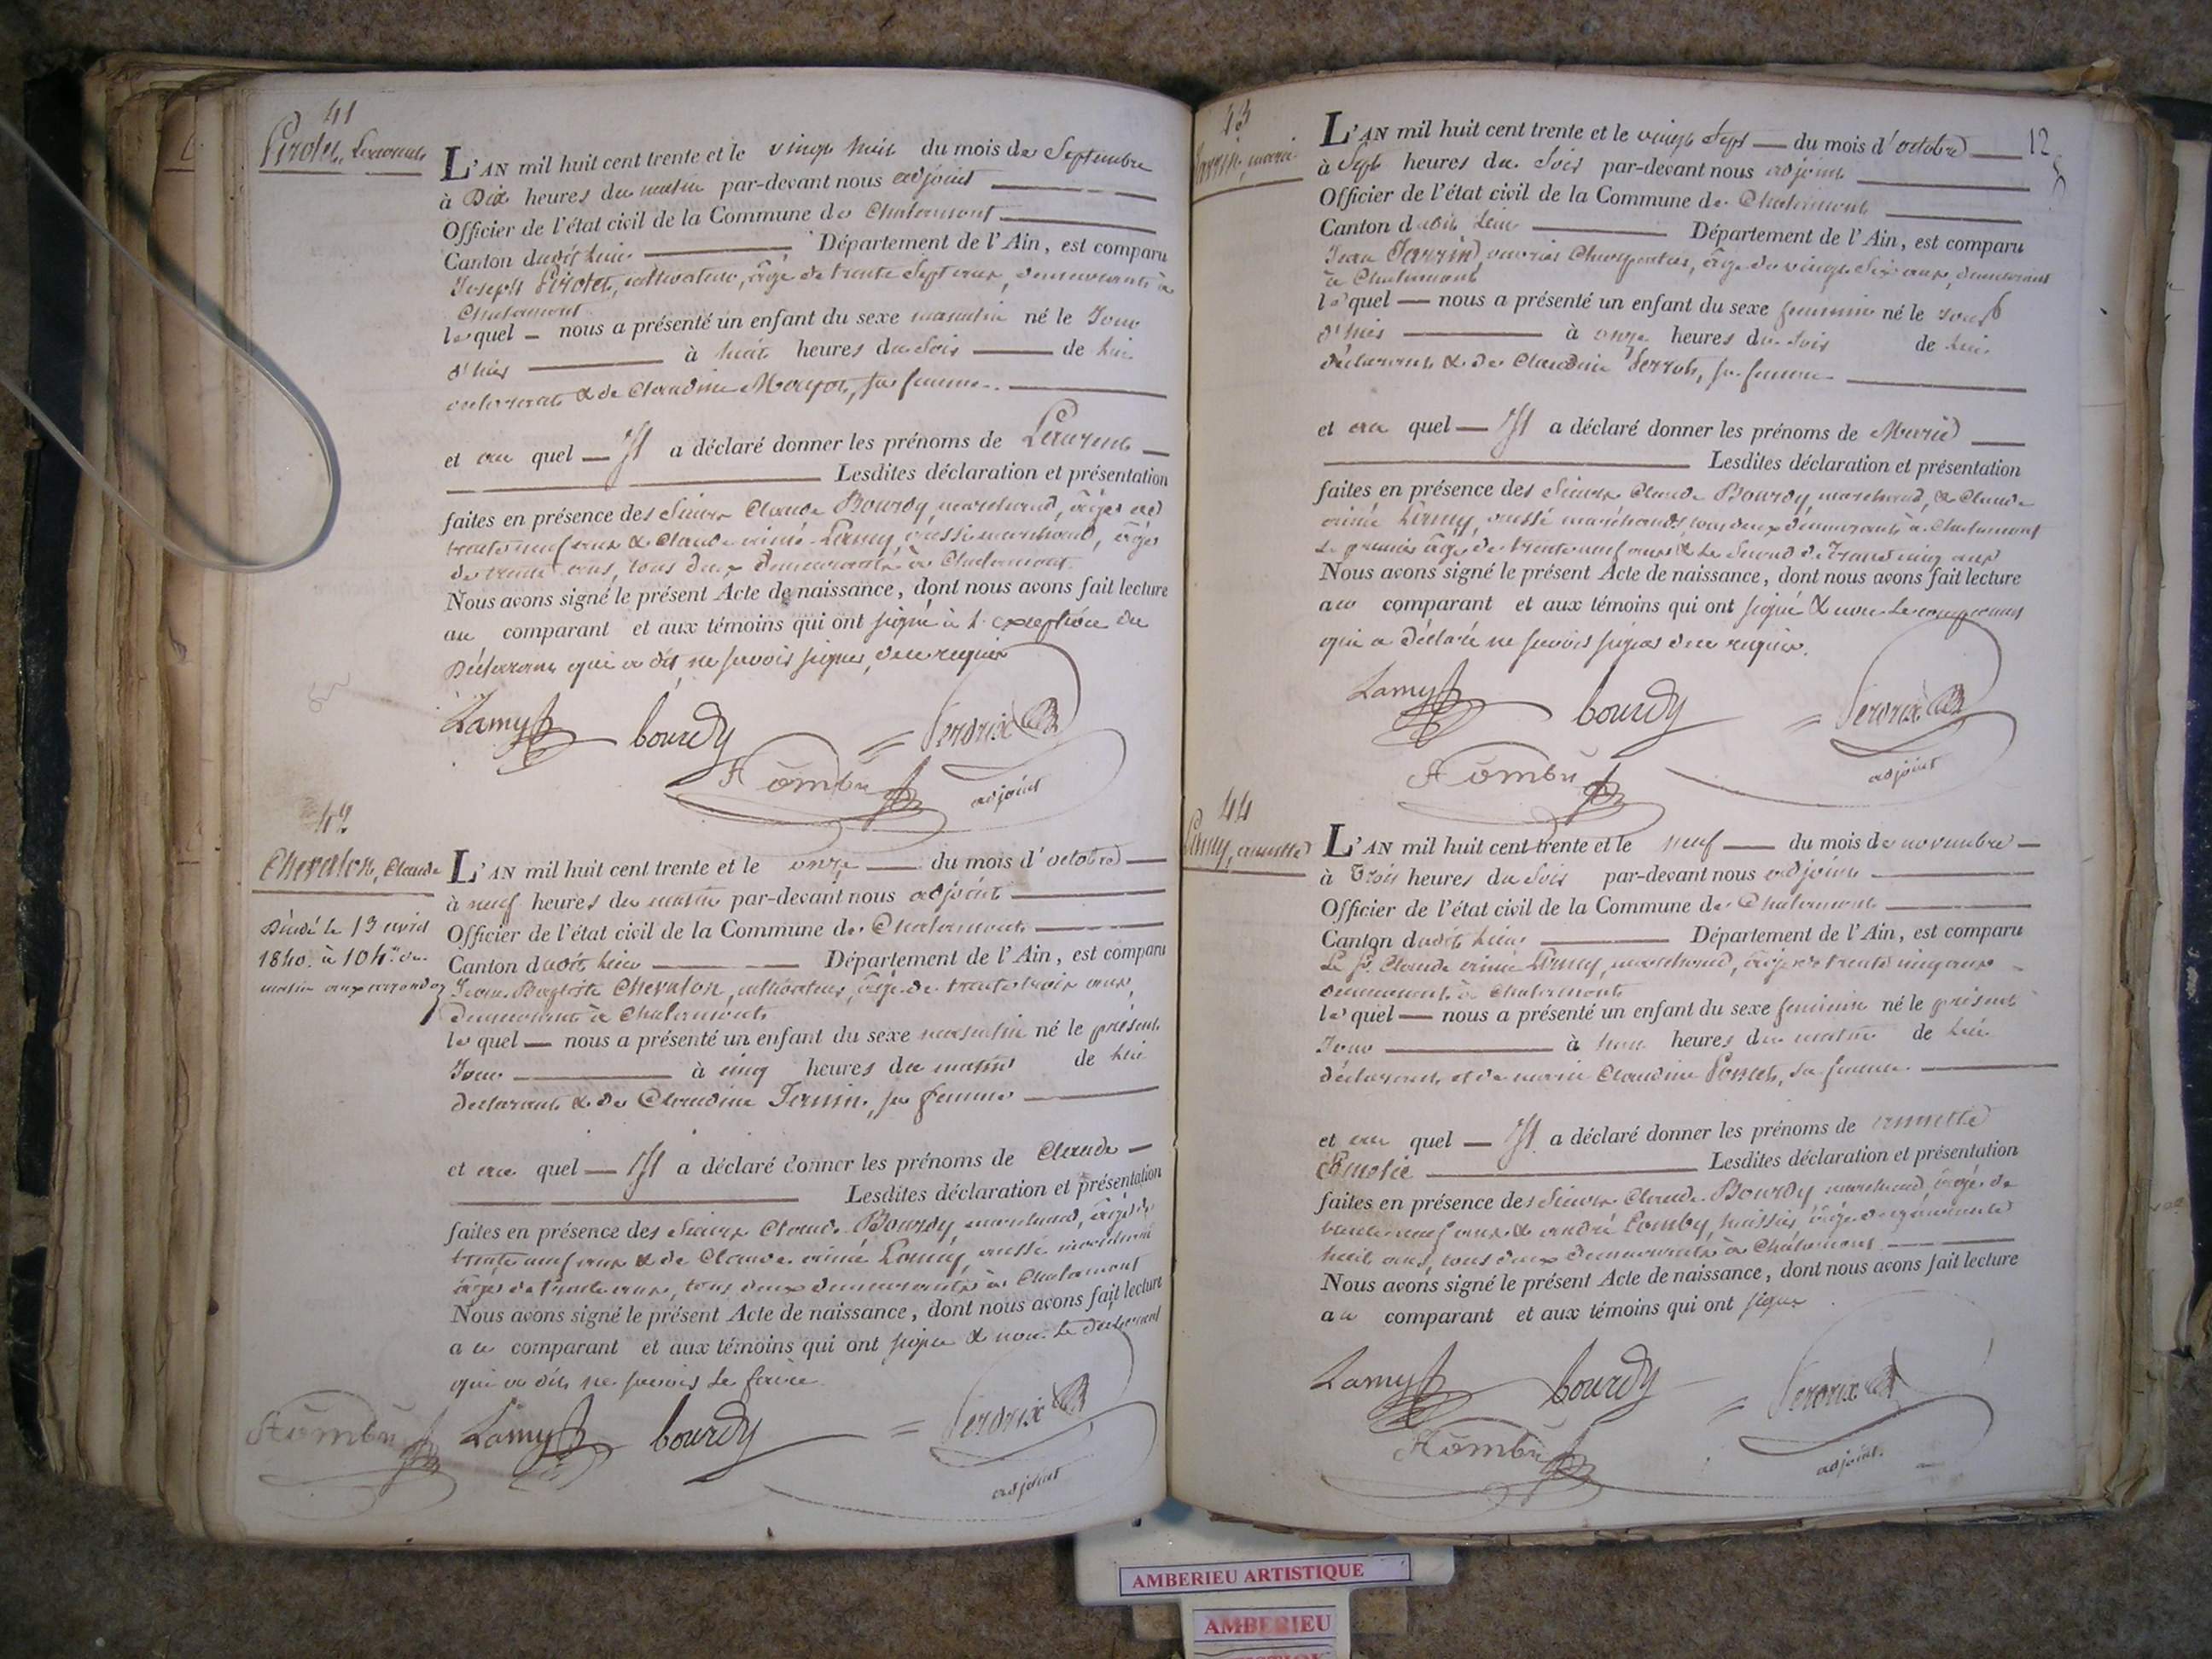 41
Pirolet, Laurent
L'AN mil huit cent trente et le vingt huit du mois de Septembre
à Dix heures du matin par-devant nous adjoint
Officier de l'état civil de la Commune de Chalamont
Canton dudit lieu Département de l'Ain, est comparu
Joseph cultivateur, âgé de trente Sept ans, demeurant à
Chalamont
lequel nous a présenté un enfant du sexe masculin né le Jour
d'hier à huit heures du soir de lui
déclarant & de Claudine sa femme
et au quel Il a déclaré donner les prénoms de Laurent
Lesdites déclaration et présentation
faites en présence des Sieurs Claude Bourdy, marchand, âgé de
trente neuf ans & Claude aimé Lamy, aussi marchand, âgé
de trente ans, tous deux demeurants à Chalamont
Nous avons signé le présent Acte de naissance, dont nous avons fait lecture
au comparant et aux témoins qui ont signé à l'exception du
Déclarant qui a dit ne savoir signer, de ce requis
Lamy bourdy
adjoint
42
Chevalon, Claude
Décédé le 13 avril
1840 à 10 h du
matin
L'AN mil huit cent trente et le onze du mois d'octobre
à neuf heures du matin par-devant nous adjoint
Officier de l'état civil de la Commune de Chalamont
Canton dudit lieu Département de l'Ain, est comparu
Jean Baptiste Chevalon, cultivateur, âgé de trente trois ans,
demeurant à Chalamont
lequel nous a présenté un enfant du sexe masculin né le présent
Jour à cinq heures du matin de lui
déclarant & de Claudine sa femme
et au quel Il a déclaré donner les prénoms de Claude
Lesdites déclaration et présentation
faites en présence des Sieurs Claude Bourdy marchand, âgé de
trente neuf ans & de Claude aimé Lamy, aussi marchand
âgé de trente ans, tous deux demeurants à Chalamont
Nous avons signé le présent Acte de naissance, dont nous avons fait lecture
au comparant et aux témoins qui ont signé & non le déclarant
qui a dit ne savoir le faire
Lamy bourdy
adjoint
43
marie
12
L'AN mil huit cent trente et le vingt Sept du mois d'octobre
à Sept heures du Soir par-devant nous adjoint
Officier de l'état civil de la Commune de Chalamont
Canton dudit lieu Département de l'Ain, est comparu
Jean ouvrier Charpentier, âgé de vingt Six ans, demeurant
à Chalamont
lequel nous a présenté un enfant du sexe féminin né le jour
d'hier à onze heures du soir de lui
déclarant & de Claudine sa femme
et au quel Il a déclaré donner les prénoms de Marie
Lesdites déclaration et présentation
faites en présence des Sieurs Claude Bourdy marchand, & Claude
aimé Lamy, aussi marchand tous deux demeurants à Chalamont
Le premier âgé de trente neuf ans & Le Second de Trente cinq ans
Nous avons signé le présent Acte de naissance, dont nous avons fait lecture
au comparant et aux témoins qui ont signé & non Le comparant
qui a déclaré ne savoir signer de ce requis.
Lamy bourdy
adjoint
44
Lamy, annette
L'AN mil huit cent trente et le neuf du mois de novembre
à Trois heures du Soir par-devant nous adjoint
Officier de l'état civil de la Commune de Chalamont
Canton dudit lieu Département de l'Ain, est comparu
Le Sr Claude aimé Lamy, marchand, âgé de trente cinq ans
demeurant à Chalamont
lequel nous a présenté un enfant du sexe féminin né le présent
Jour à heures du matin de lui
déclarant et de marie Claudine sa femme
et au quel Il a déclaré donner les prénoms de annette
Lesdites déclaration et présentation
faites en présence des Sieurs Claude Bourdy marchand âgé de
trente neuf ans & andré huissier âgé de
huit ans, tous deux demeurants à Chalamont
Nous avons signé le présent Acte de naissance, dont nous avons fait lecture
au comparant et aux témoins qui ont signé
Lamy bourdy
adjoint
AMBERIEU ARTISTIQUE
AMBERIEU